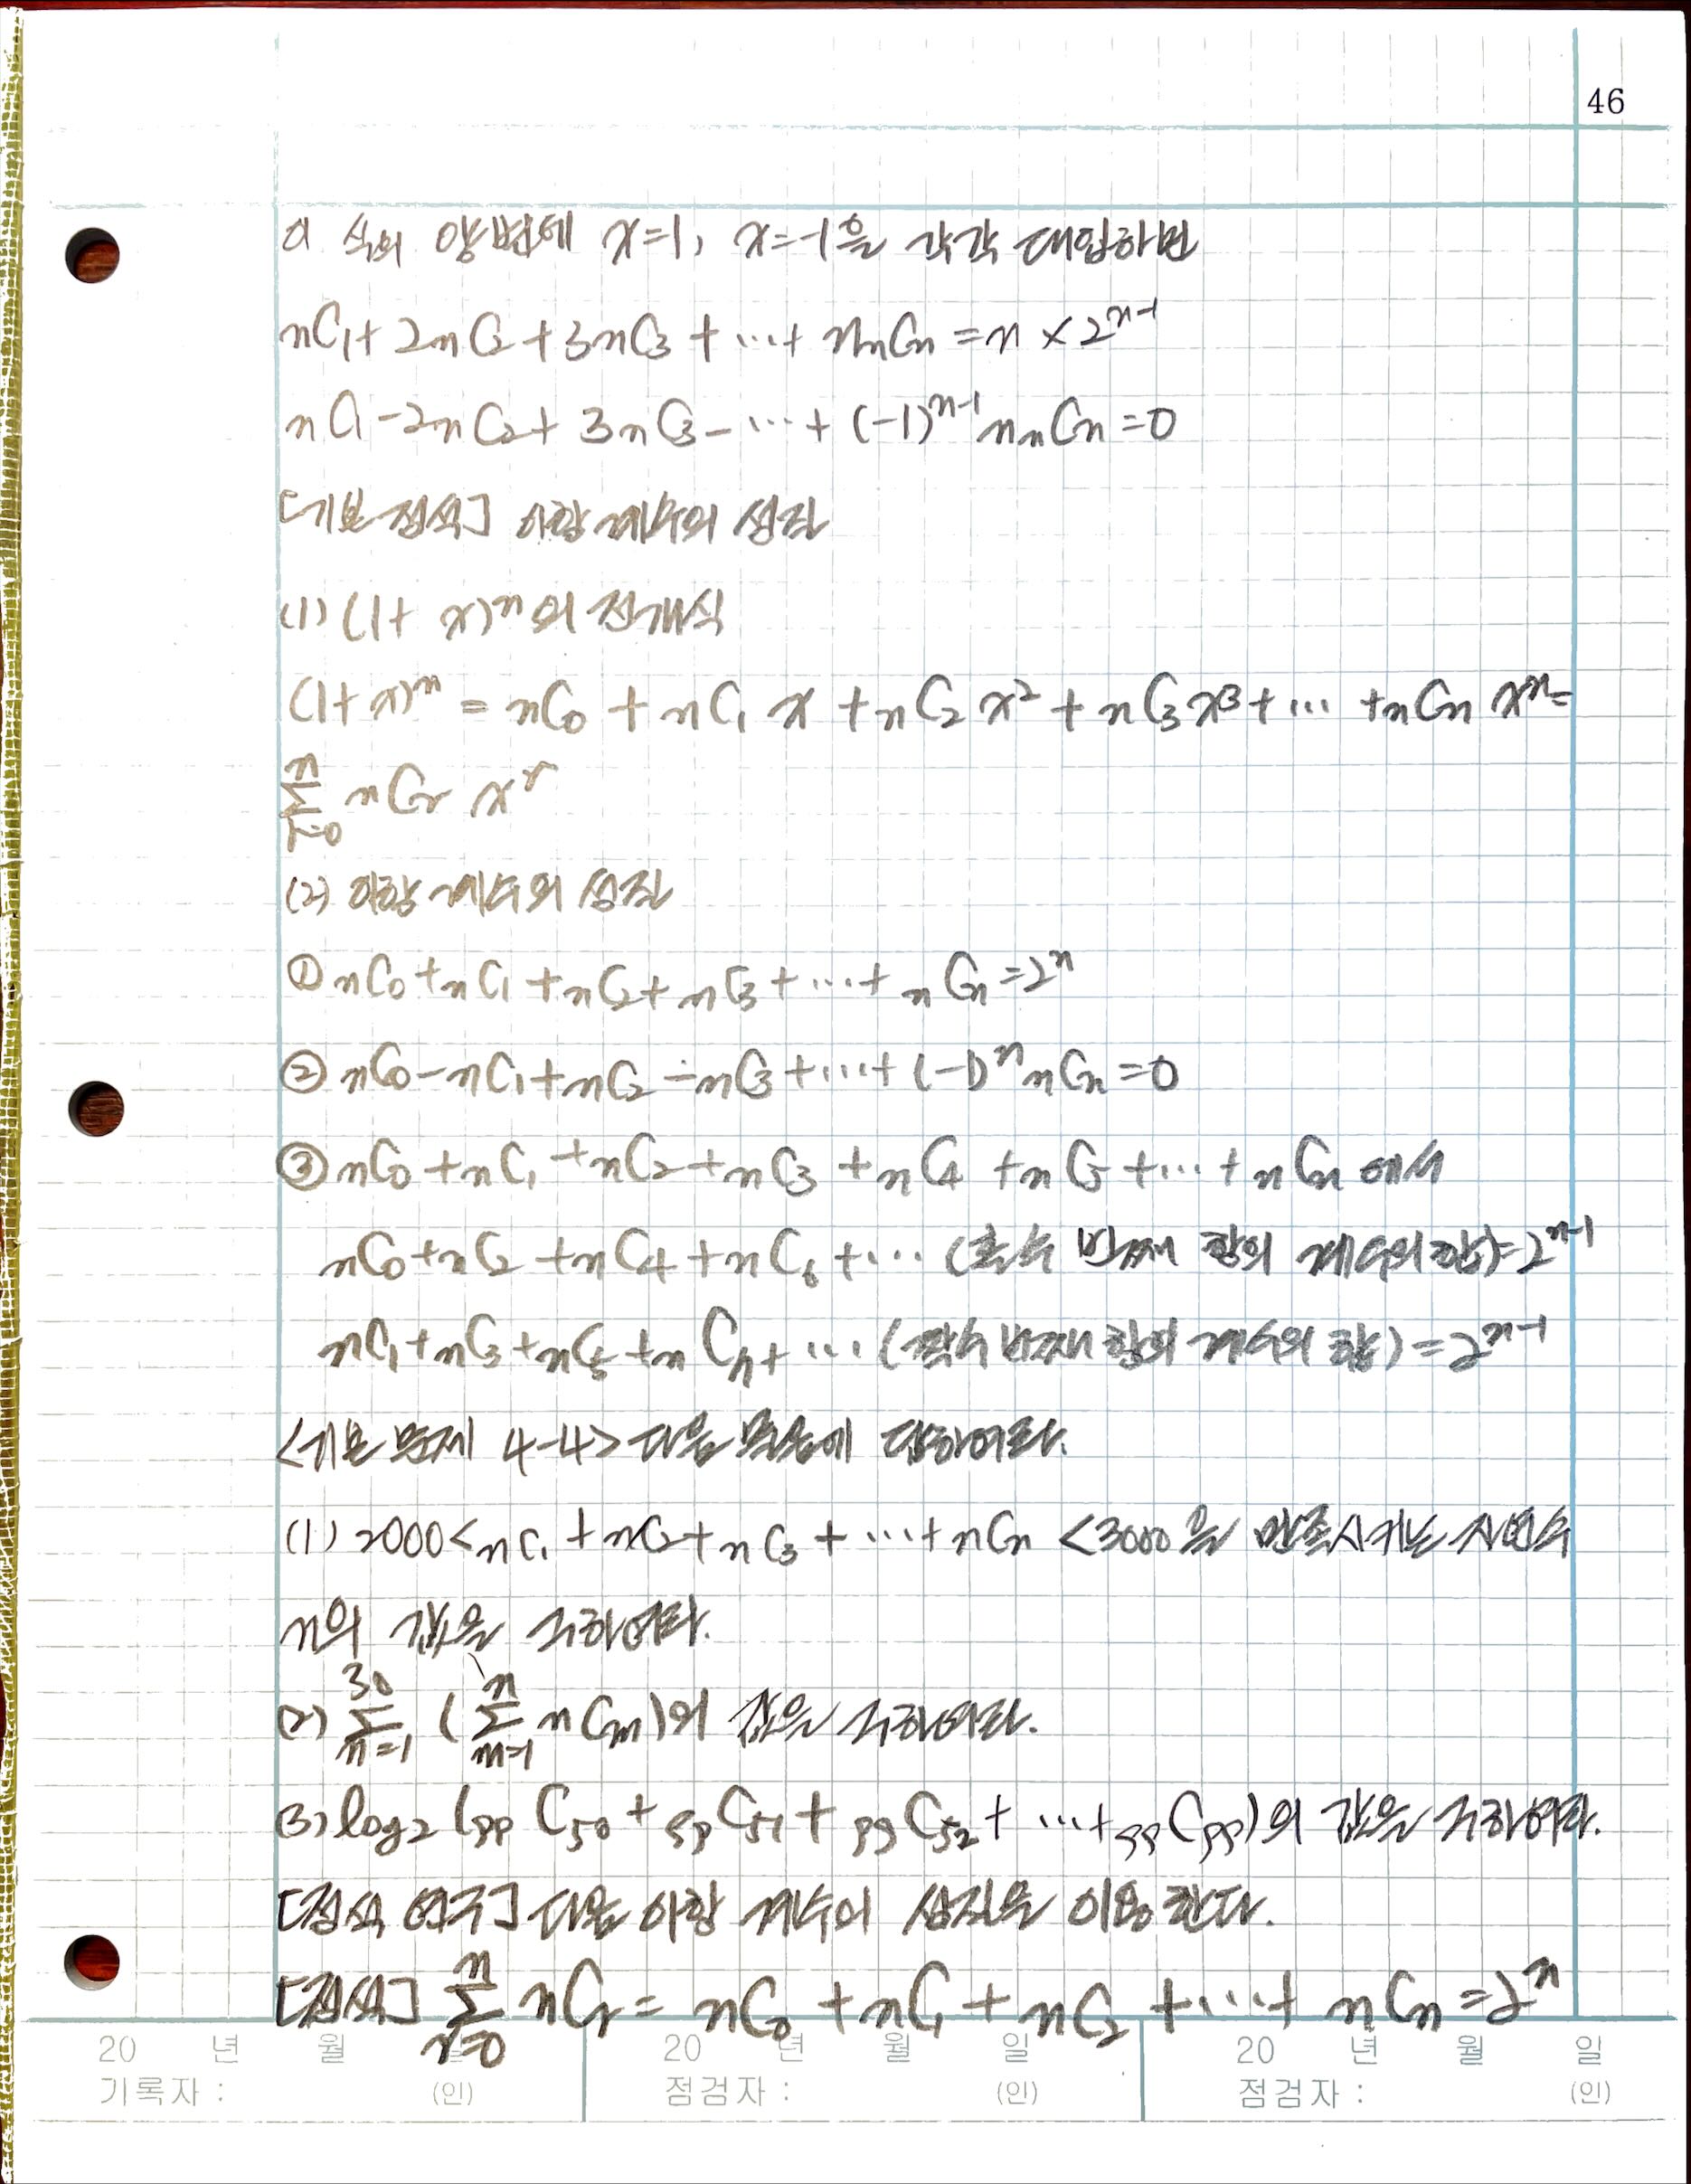 46
이 식의 양변에 x=1, x=-1을 각각 대입하면
nC₁+2nC₂+3nC₃+⋯+nₙCₙ=n×2ⁿ⁻¹
nC₁-2nC₂+3nC₃-⋯+(-1)ⁿ⁻¹nₙCₙ=0
[기본 정석] 이항 계수의 성질
(1) (1+x)ⁿ의 전개식
(1+x)ⁿ=nC₀+nC₁x+nC₂x²+nC₃x³+⋯+nCₙxⁿ=
∑ⁿᵣ₌₀ nCᵣ xʳ
(2) 이항 계수의 성질
① nC₀+nC₁+nC₂+nC₃+⋯+nCₙ=2ⁿ
② nC₀-nC₁+nC₂-nC₃+⋯+(-1)ⁿnCₙ=0
③ nC₀+nC₁+nC₂+nC₃+nC₄+nC₅+⋯+nCₙ에서
nC₀+nC₂+nC₄+nC₆+⋯(홀수 번째 항의 계수의 합)=2ⁿ⁻¹
nC₁+nC₃+nC₅+nC₇+⋯(짝수 번째 항의 계수의 합)=2ⁿ⁻¹
<기본 문제 4-4> 다음 물음에 답하여라.
(1) 2000<nC₁+nC₂+nC₃+⋯+nCₙ<3000을 만족시키는 자연수
n의 값을 구하여라.
(2) ∑³⁰ₙ₌₁ (∑ⁿₘ₌₁ nCₘ)의 값을 구하여라.
(3) log₂(₉₉C₅₀+₉₉C₅₁+₉₉C₅₂+⋯+₉₉C₉₉)의 값을 구하여라.
[정석 연구] 다음 이항 계수의 성질을 이용한다.
[정석] ∑ⁿᵣ₌₀ nCᵣ=nC₀+nC₁+nC₂+⋯+nCₙ=2ⁿ
20 년 월 일 20 년 월 일 20 년 월 일
기록자 : (인) 점검자 : (인) 점검자 : (인)